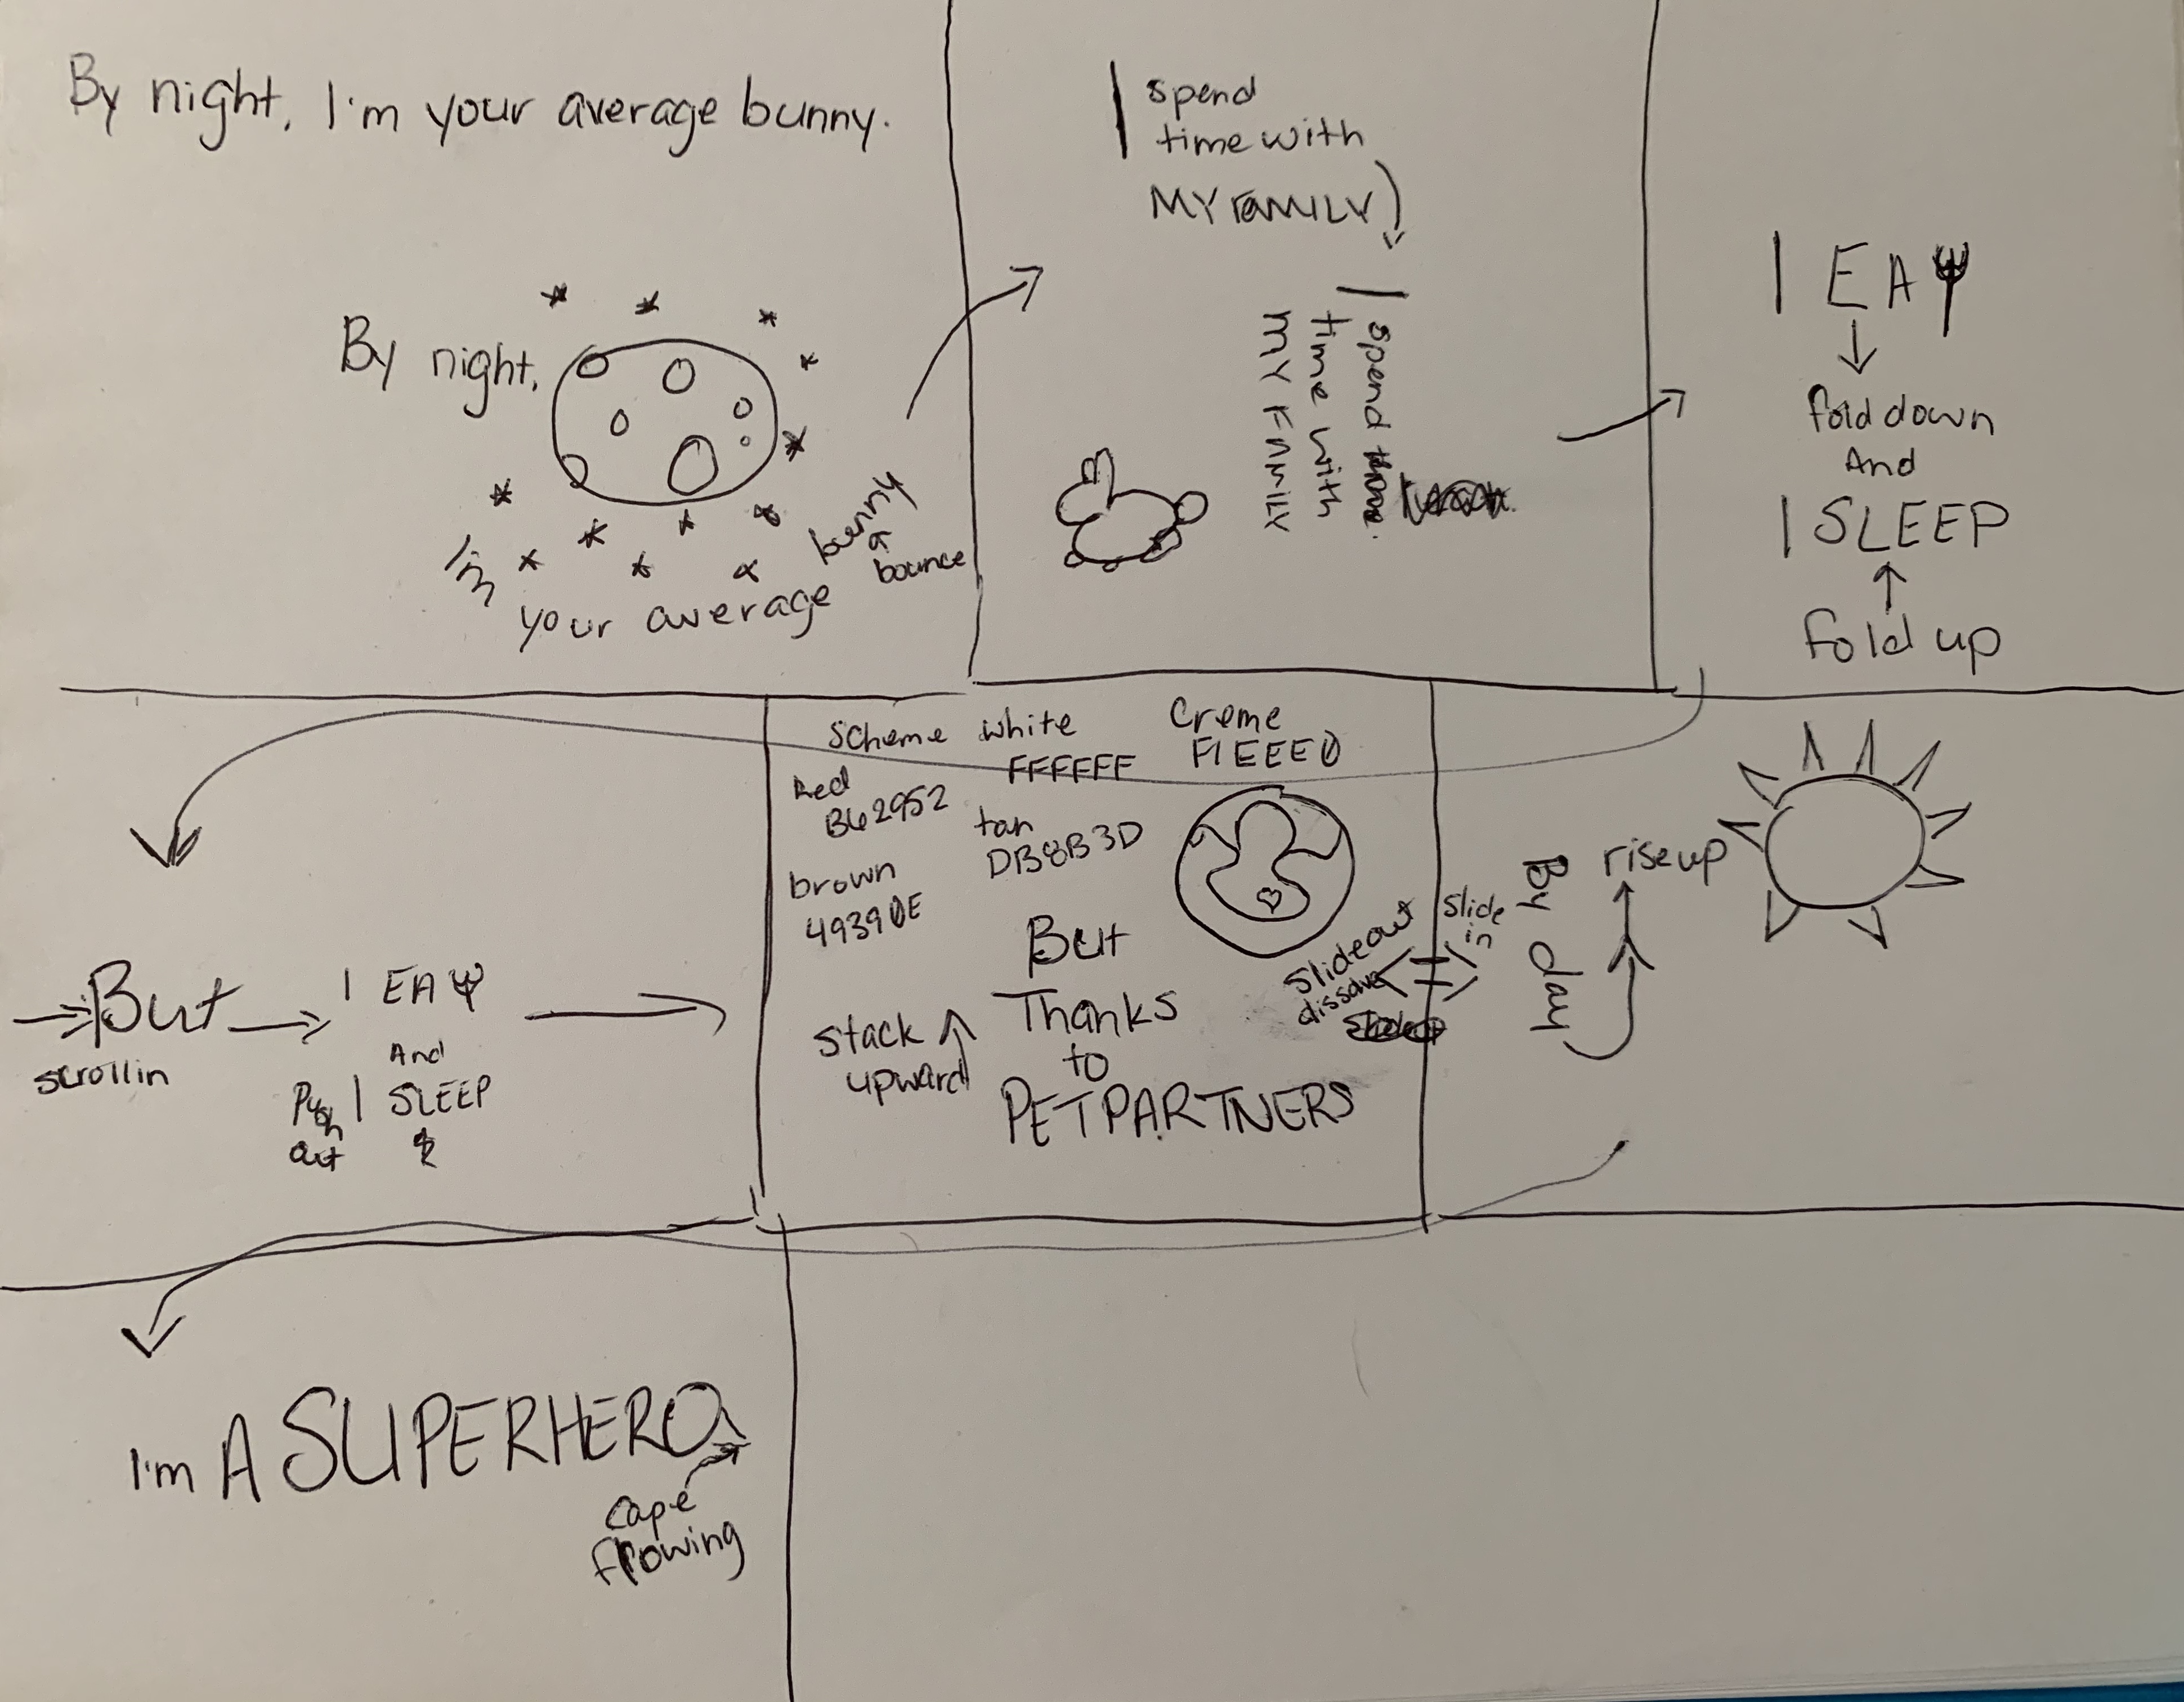 By night, I'm your average bunny.
By night,
I'm
your average
bunny
a
bounce
I spend
time with
MY FAMILY
I spend
time with
MY FAMILY
I EA
fold down
And
I SLEEP
fold up
But
scroll in
I EA
And
Push
out
I SLEEP
scheme white
FFFFFF
Creme
F1EEE0
Red
B62952
tan
DB8B3D
brown
49390E
But
Thanks
to
PET PARTNERS
stack
upward
slide out
dissolve
slide
in
By day
rise up
I'm A SUPERHERO
cape
flowing